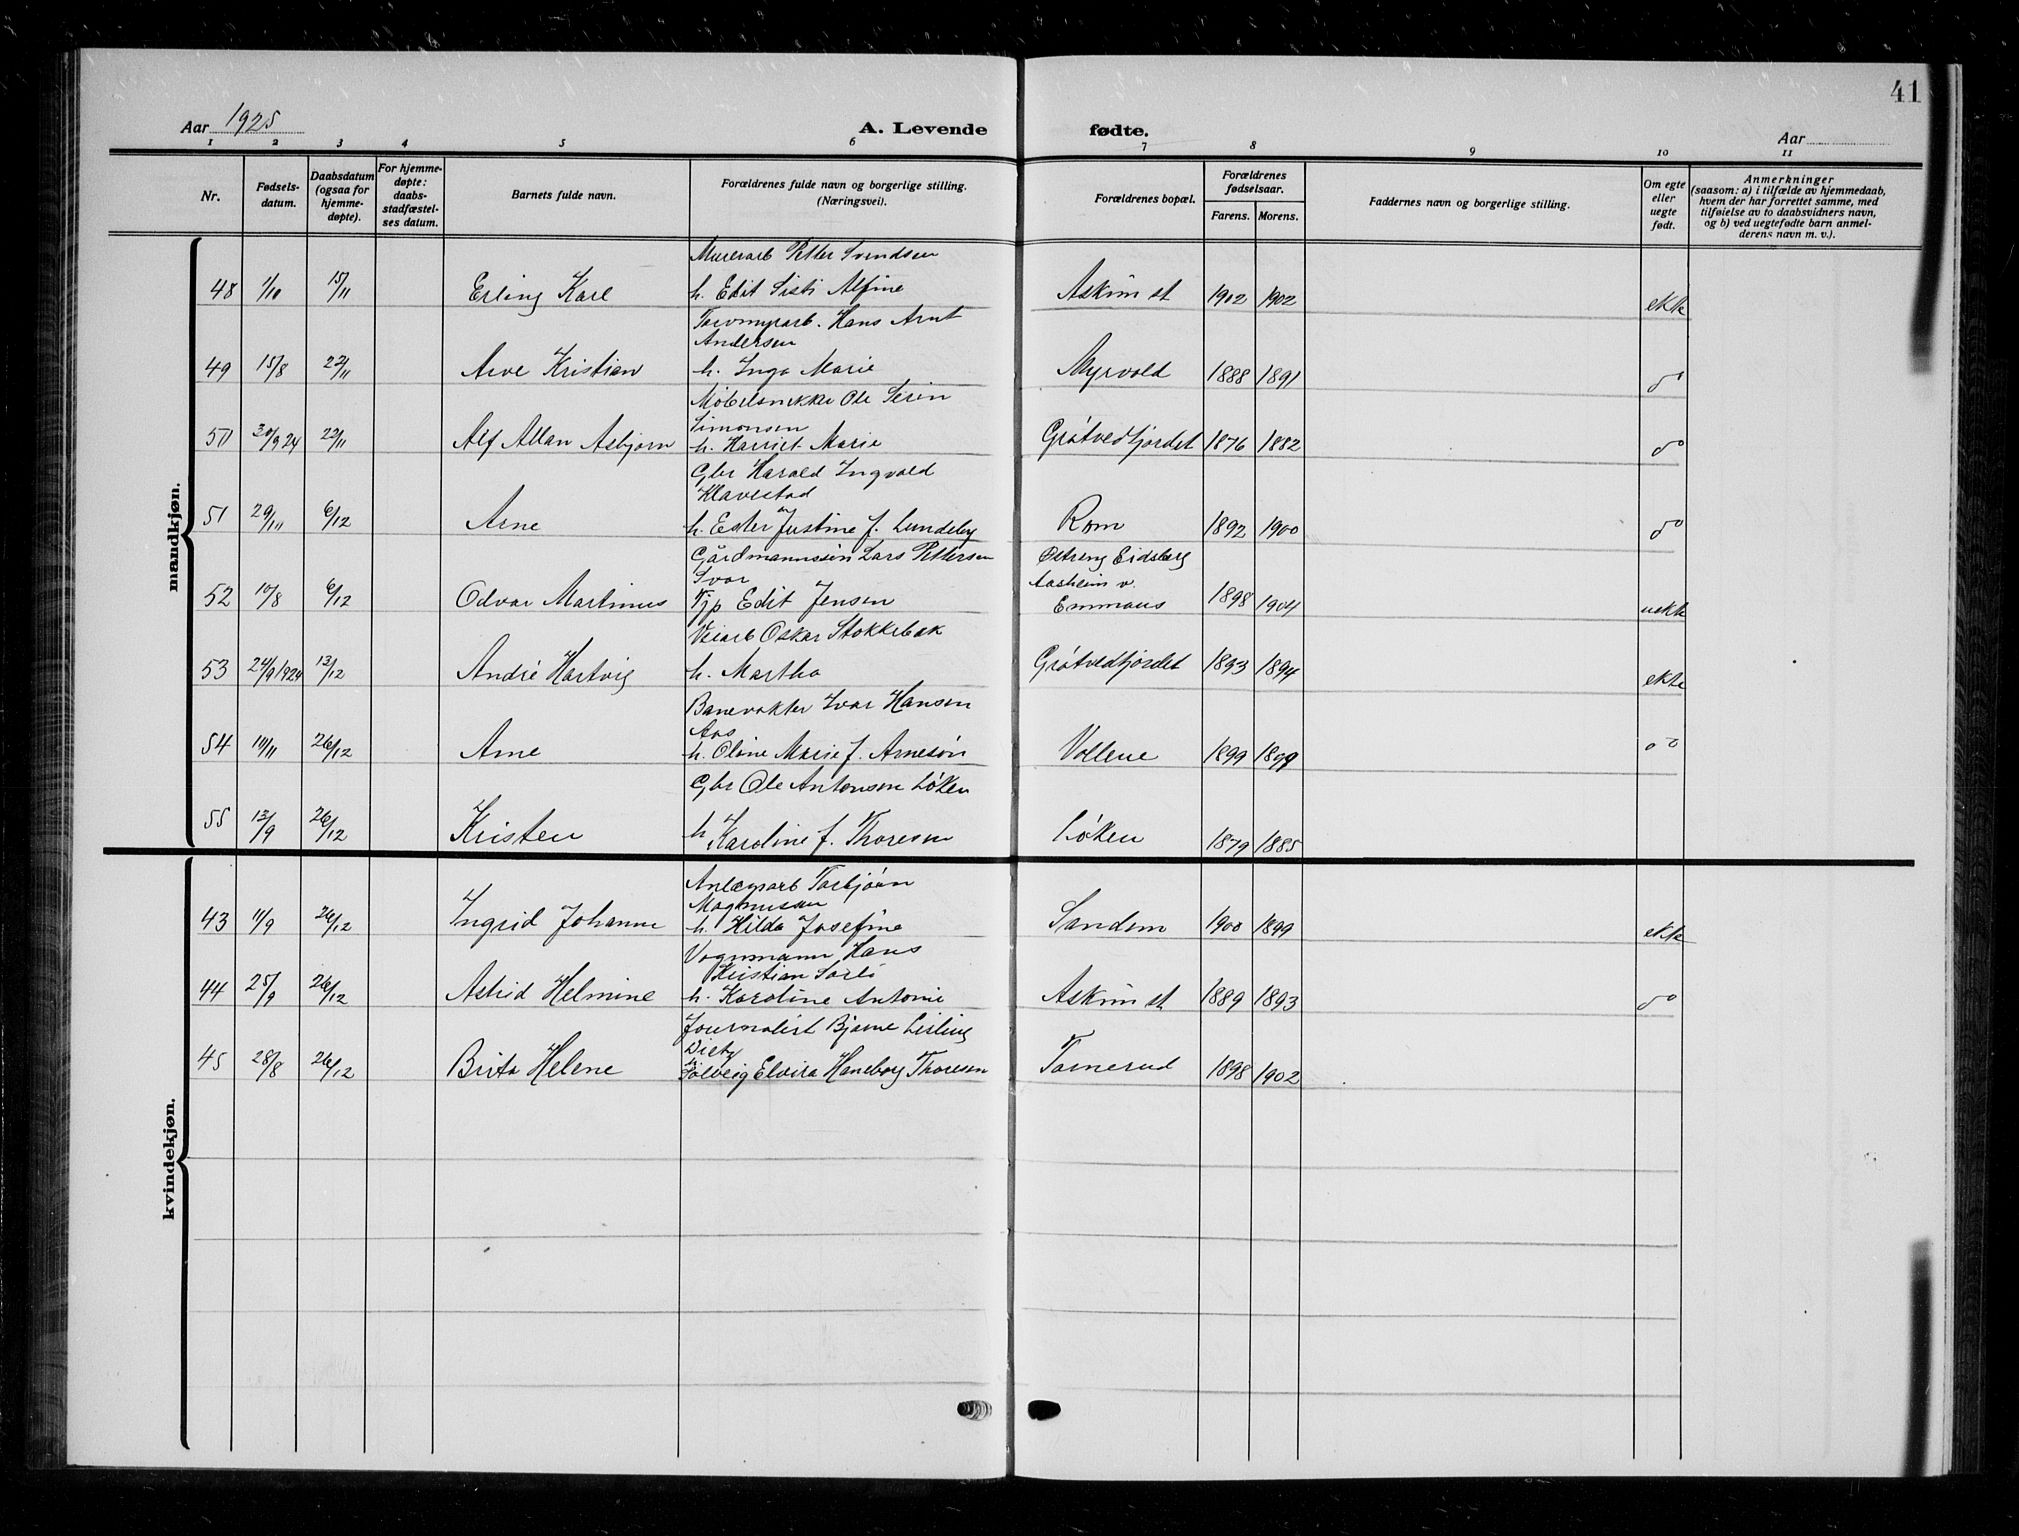 41
Aar 1925
A. Levende fødte.
Aar
1 2 3 4 5 6 7 8 9 10 11
Nr.
Fødsels-
datum.
Daabsdatum
(ogsaa for
hjemme-
døpte).
For hjemme-
døpte:
daabs-
stadfæstel-
ses datum.
Barnets fulde navn.
Forældrenes fulde navn og borgerlige stilling.
(Næringsvei).
Forældrenes bopæl.
Forældrenes
fødselsaar.
Farens. Morens.
Faddernes navn og borgerlige stilling.
Om egte
eller
uegte
født.
Anmerkninger
(saasom: a) i tilfælde av hjemmedaab,
hvem der har forrettet samme, med
tilføielse av to daabsvidners navn,
og b) ved uegtefødte barn anmel-
derens navn m. v.).
mandkjøn.
Murerarb Petter Svendsen
48 1/10 15/11 Erling Karl h. Edit Sisti Alfine Askim st 1902 1902 ekte
Torvmyrarb. Hans Arnt
Andersen
49 15/8 22/11 Arve Kristian h. Inga Marie Myrvold 1888 1891 do
Møbelsnekker Ole Serin
Simonsen
50 30/9 24 22/11 Alf Allan Asbjørn h. Harriet Marie Grøtvedtjordet 1876 1882 do
Gbr Harald Ingvald
Klavestad
51 29/11 6/12 Arne h. Ester Justine f. Lundeby Rom 1892 1900 do
Gårdmannssøn Lars Pettersen Østreng Eidsberg
Svar Aasheim v
52 10/8 6/12 Odvar Martinus Tjp Edit Jensen Emmaus 1898 1904 uekte
Veiarb Oskar Stokkebæk
53 24/9 1924 13/12 André Hartvig h. Martha Grøtvedtjordet 1893 1894 ekte
Banevokter Ivar Hansen
Aas
54 10/11 26/12 Arne h. Oline Marie f. Arnesøn Vollene 1899 1899 do
Gbr Ole Antonsen Løken
55 13/9 26/12 Kristen h. Karoline f. Thoresen Løken 1879 1885
kvindekjøn.
Anlægsarb Torbjørn
Magnussen
43 11/9 26/12 Ingrid Johanne h. Hilda Josefine Sandem 1900 1899 ekte
Vognmann Hans
Kristian Sorli
44 25/9 26/12 Astrid Helmine h. Karoline Antonie Askim st 1889 1893 do
Journalist Bjarne Lisling
Diety
45 28/8 26/12 Brita Helene h. Solveig Elvira Haneborg Thoresen Tomerud 1898 1902